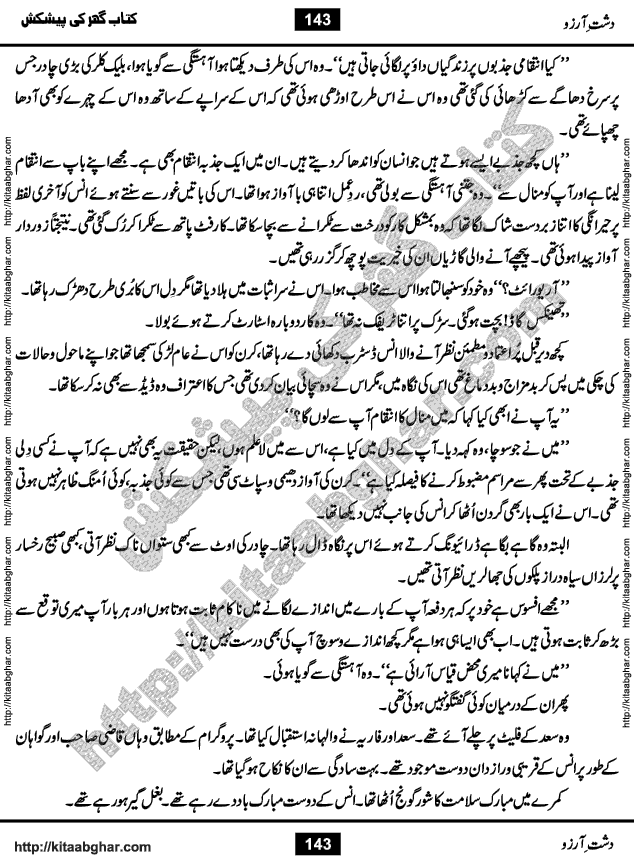 کتاب گھر کی پیشکش
143
دشتِ آرزو
’’کیا انتقامی جذبوں پر زندگیاں داؤ پر لگائی جاتی ہیں‘‘۔ وہ اس کی طرف دیکھتا ہوا آہستگی سے گویا ہوا، بلیک کلر کی بڑی چادر جس
پر سرخ دھاگے سے کڑھائی کی گئی تھی وہ اس نے اس طرح اوڑھی ہوئی تھی کہ اس کے سراپے کے ساتھ وہ اس کے چہرے کو بھی آدھا
چھپائے تھی۔
’’ہاں کچھ جذبے ایسے ہوتے ہیں جو انسان کو اندھا کر دیتے ہیں۔ ان میں ایک جذبہ انتقام بھی ہے۔ مجھے اپنے باپ سے انتقام
لینا ہے اور آپ کو منال سے‘‘۔ وہ جتنی آہستگی سے بولی تھی، ردِعمل اتنا ہی با آواز ہوا تھا۔ اس کی باتیں غور سے سنتے ہوئے انس کو آخری لفظ
پر حیرانگی کا اتنا زبردست شاک لگا تھا کہ وہ بمشکل کار کو درخت سے ٹکرانے سے بچا سکا تھا۔ کار فٹ پاتھ سے ٹکرا کر رُک گئی تھی۔ نتیجتاً زوردار
آواز پیدا ہوئی تھی۔ پیچھے آنے والی گاڑیاں ان کی خیریت پوچھ کر گزر رہی تھیں۔
’’آر یو رائٹ؟‘‘ وہ خود کو سنبھالتا ہوا اس سے مخاطب ہوا۔ اس نے سر اثبات میں ہلا دیا تھا مگر دل اس کا بُری طرح دھڑک رہا تھا۔
’’تھینکس گاڈ! بچت ہو گئی۔ سڑک پر اتنا ٹریفک نہ تھا‘‘۔ وہ کار دوبارہ اسٹارٹ کرتے ہوئے بولا۔
کچھ دیر قبل پُر اعتماد و مطمئن نظر آنے والا انس ڈسٹرب دکھائی دے رہا تھا، کرن کو اس نے عام لڑکی سمجھا تھا جو اپنے ماحول و حالات
کی چکی میں پس کر بدمزاج و بد دماغ تھی اس کی نگاہ میں، مگر اس نے وہ سچائی بیان کر دی تھی جس کا اعتراف وہ ڈیڈ سے بھی نہ کر سکا تھا۔
’’یہ آپ نے ابھی کیا کہا کہ میں منال کا انتقام آپ سے لوں گا؟‘‘
’’میں نے جو سوچا، وہ کہہ دیا۔ آپ کے دل میں کیا ہے، اس سے میں لاعلم ہوں، لیکن حقیقت یہ بھی نہیں ہے کہ آپ نے کسی ولی
جذبے کے تحت پھر سے مراسم مضبوط کرنے کا فیصلہ کیا ہے‘‘۔ کرن کی آواز دھیمی و سپاٹ سی تھی جس سے کوئی جذبہ، کوئی اُمنگ ظاہر نہیں ہوتی
تھی۔ اس نے ایک بار بھی گردن اُٹھا کر انس کی جانب نہیں دیکھا تھا۔
البتہ وہ گاہے بگاہے ڈرائیونگ کرتے ہوئے اس پر نگاہ ڈال رہا تھا۔ چادر کی اوٹ سے کبھی ستواں ناک نظر آتی، کبھی صبیح رخسار
پر لرزاں سیاہ دراز پلکوں کی جھالریں نظر آتی تھیں۔
’’مجھے افسوس ہے خود پر کہ ہر دفعہ آپ کے بارے میں اندازے لگانے میں ناکام ثابت ہوتا ہوں اور ہر بار آپ میری توقع سے
بڑھ کر ثابت ہوتی ہیں۔ اب بھی ایسا ہی ہوا ہے مگر کچھ اندازے و سوچ آپ کی بھی درست نہیں ہیں‘‘۔
’’میں نے کہا نا میری محض قیاس آرائی ہے‘‘۔ وہ آہستگی سے گویا ہوئی۔
پھر ان کے درمیان کوئی گفتگو نہیں ہوئی تھی۔
وہ سعد کے فلیٹ پر چلے آئے تھے۔ سعد اور فاریہ نے والہانہ استقبال کیا تھا۔ پروگرام کے مطابق وہاں قاضی صاحب اور گواہان
کے طور پر انس کے قریبی و رازدان دوست موجود تھے۔ بہت سادگی سے ان کا نکاح ہو گیا تھا۔
کمرے میں مبارک سلامت کا شور گونج اُٹھا تھا۔ انس کے دوست مبارک باد دے رہے تھے۔ بغل گیر ہو رہے تھے۔
http://kitaabghar.com
143
دشتِ آرزو